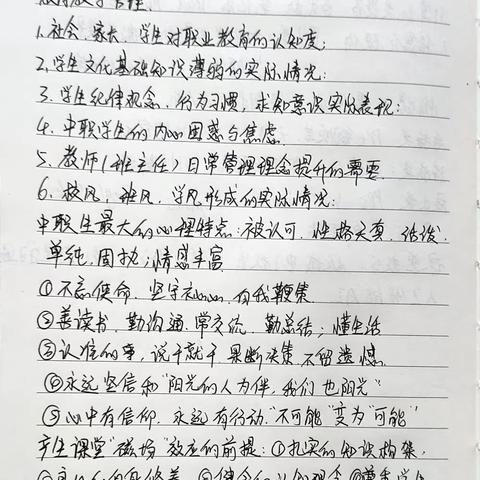 1、社会、家长、学生对职业教育的认知度;
2、学生文化基础知识薄弱的实际情况:
3、学生纪律观念、行为习惯,求知意识实际表现:
4、中职学生的内心困惑与焦虑.
5、教师(班主任)日常管理理念提升的需要.
6、校风、班风、学风形成的实际情况:
中职生最大的心理特点:被认可、性格天真、活泼、
单纯、固执;情感丰富.
①不忘使命、坚守初心、自我鞭策.
②善读书、勤沟通、常交流、勤总结;懂生活
③认准的事,说干就干 果断决策、不留遗憾.
④永远坚信和"阳光的人为伴,我们也阳光"
⑤心中有信仰、永远有行动"不可能"变为"可能"
产生课堂"磁场"效应的前提:①扎实的知识构架,